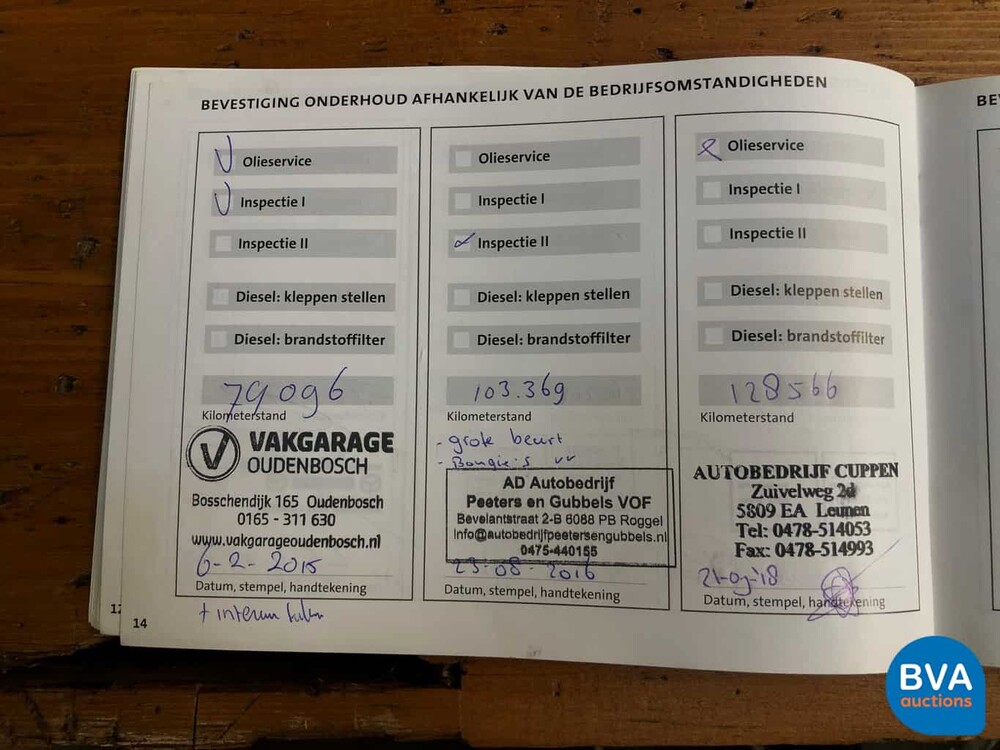 BEVESTIGING ONDERHOUD AFHANKELIJK VAN DE BEDRIJFSOMSTANDIGHEDEN
BE
Olieservice
Inspectie I
Inspectie II
Diesel: kleppen stellen
Diesel: brandstoffilter
79096
Kilometerstand
VAKGARAGE
OUDENBOSCH
Bosschendijk 165 Oudenbosch
0165 - 311 630
www.vakgarageoudenbosch.nl
6-2-2015
Datum, stempel, handtekening
+ interieur
Olieservice
Inspectie I
Inspectie II
Diesel: kleppen stellen
Diesel: brandstoffilter
103.369
Kilometerstand
- grote beurt
- Bougie's vv
AD Autobedrijf
Peeters en Gubbels VOF
Bevelantstraat 2-B 6088 PB Roggel
info@autobedrijfpeetersengubbels.nl
0475-440155
23-08-2016
Datum, stempel, handtekening
Olieservice
Inspectie I
Inspectie II
Diesel: kleppen stellen
Diesel: brandstoffilter
128566
Kilometerstand
AUTOBEDRIJF CUPPEN
Zuivelweg 2d
5809 EA Leunen
Tel: 0478-514053
Fax: 0478-514993
21-09-'18
Datum, stempel, handtekening
12
14
BVA
auctions